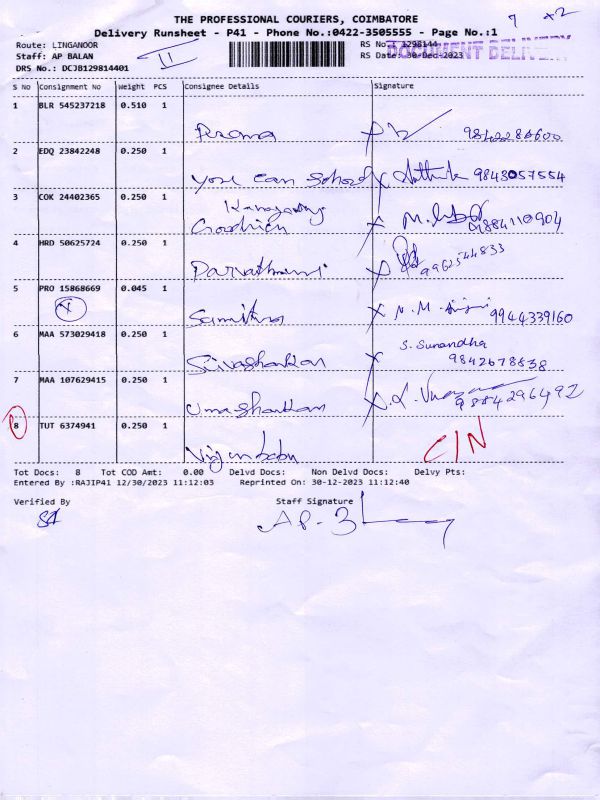 THE PROFESSIONAL COURIERS, COIMBATORE
Delivery Runsheet - P41 - Phone No.:0422-3505555 - Page No.:1
7
Route: LINGANOOR
Staff: AP BALAN
DRS No.: DCJB129814401
II
RS No.: 1298144
RS Date: 30-Dec-2023
DOCUMENT DELIVERY
S No Consignment No Weight PCS Consignee Details Signature
1 BLR 545237218 0.510 1
Perama 9842286600
2 EDQ 23842248 0.250 1
you can School 9843057554
3 COK 24402365 0.250 1
9884110904
4 HRD 50625724 0.250 1
9962544833
5 PRO 15868669 0.045 1
Sumithra 9944339160
6 MAA 573029418 0.250 1
S. Sunandha
Srivashankan 9842678838
7 MAA 107629415 0.250 1
Umashankan 9884296492
8 TUT 6374941 0.250 1
C/N
Tot Docs: 8 Tot COD Amt: 0.00 Delvd Docs: Non Delvd Docs: Delvy Pts:
Entered By :RAJIP41 12/30/2023 11:12:03 Reprinted On: 30-12-2023 11:12:40
Verified By Staff Signature
AP-B